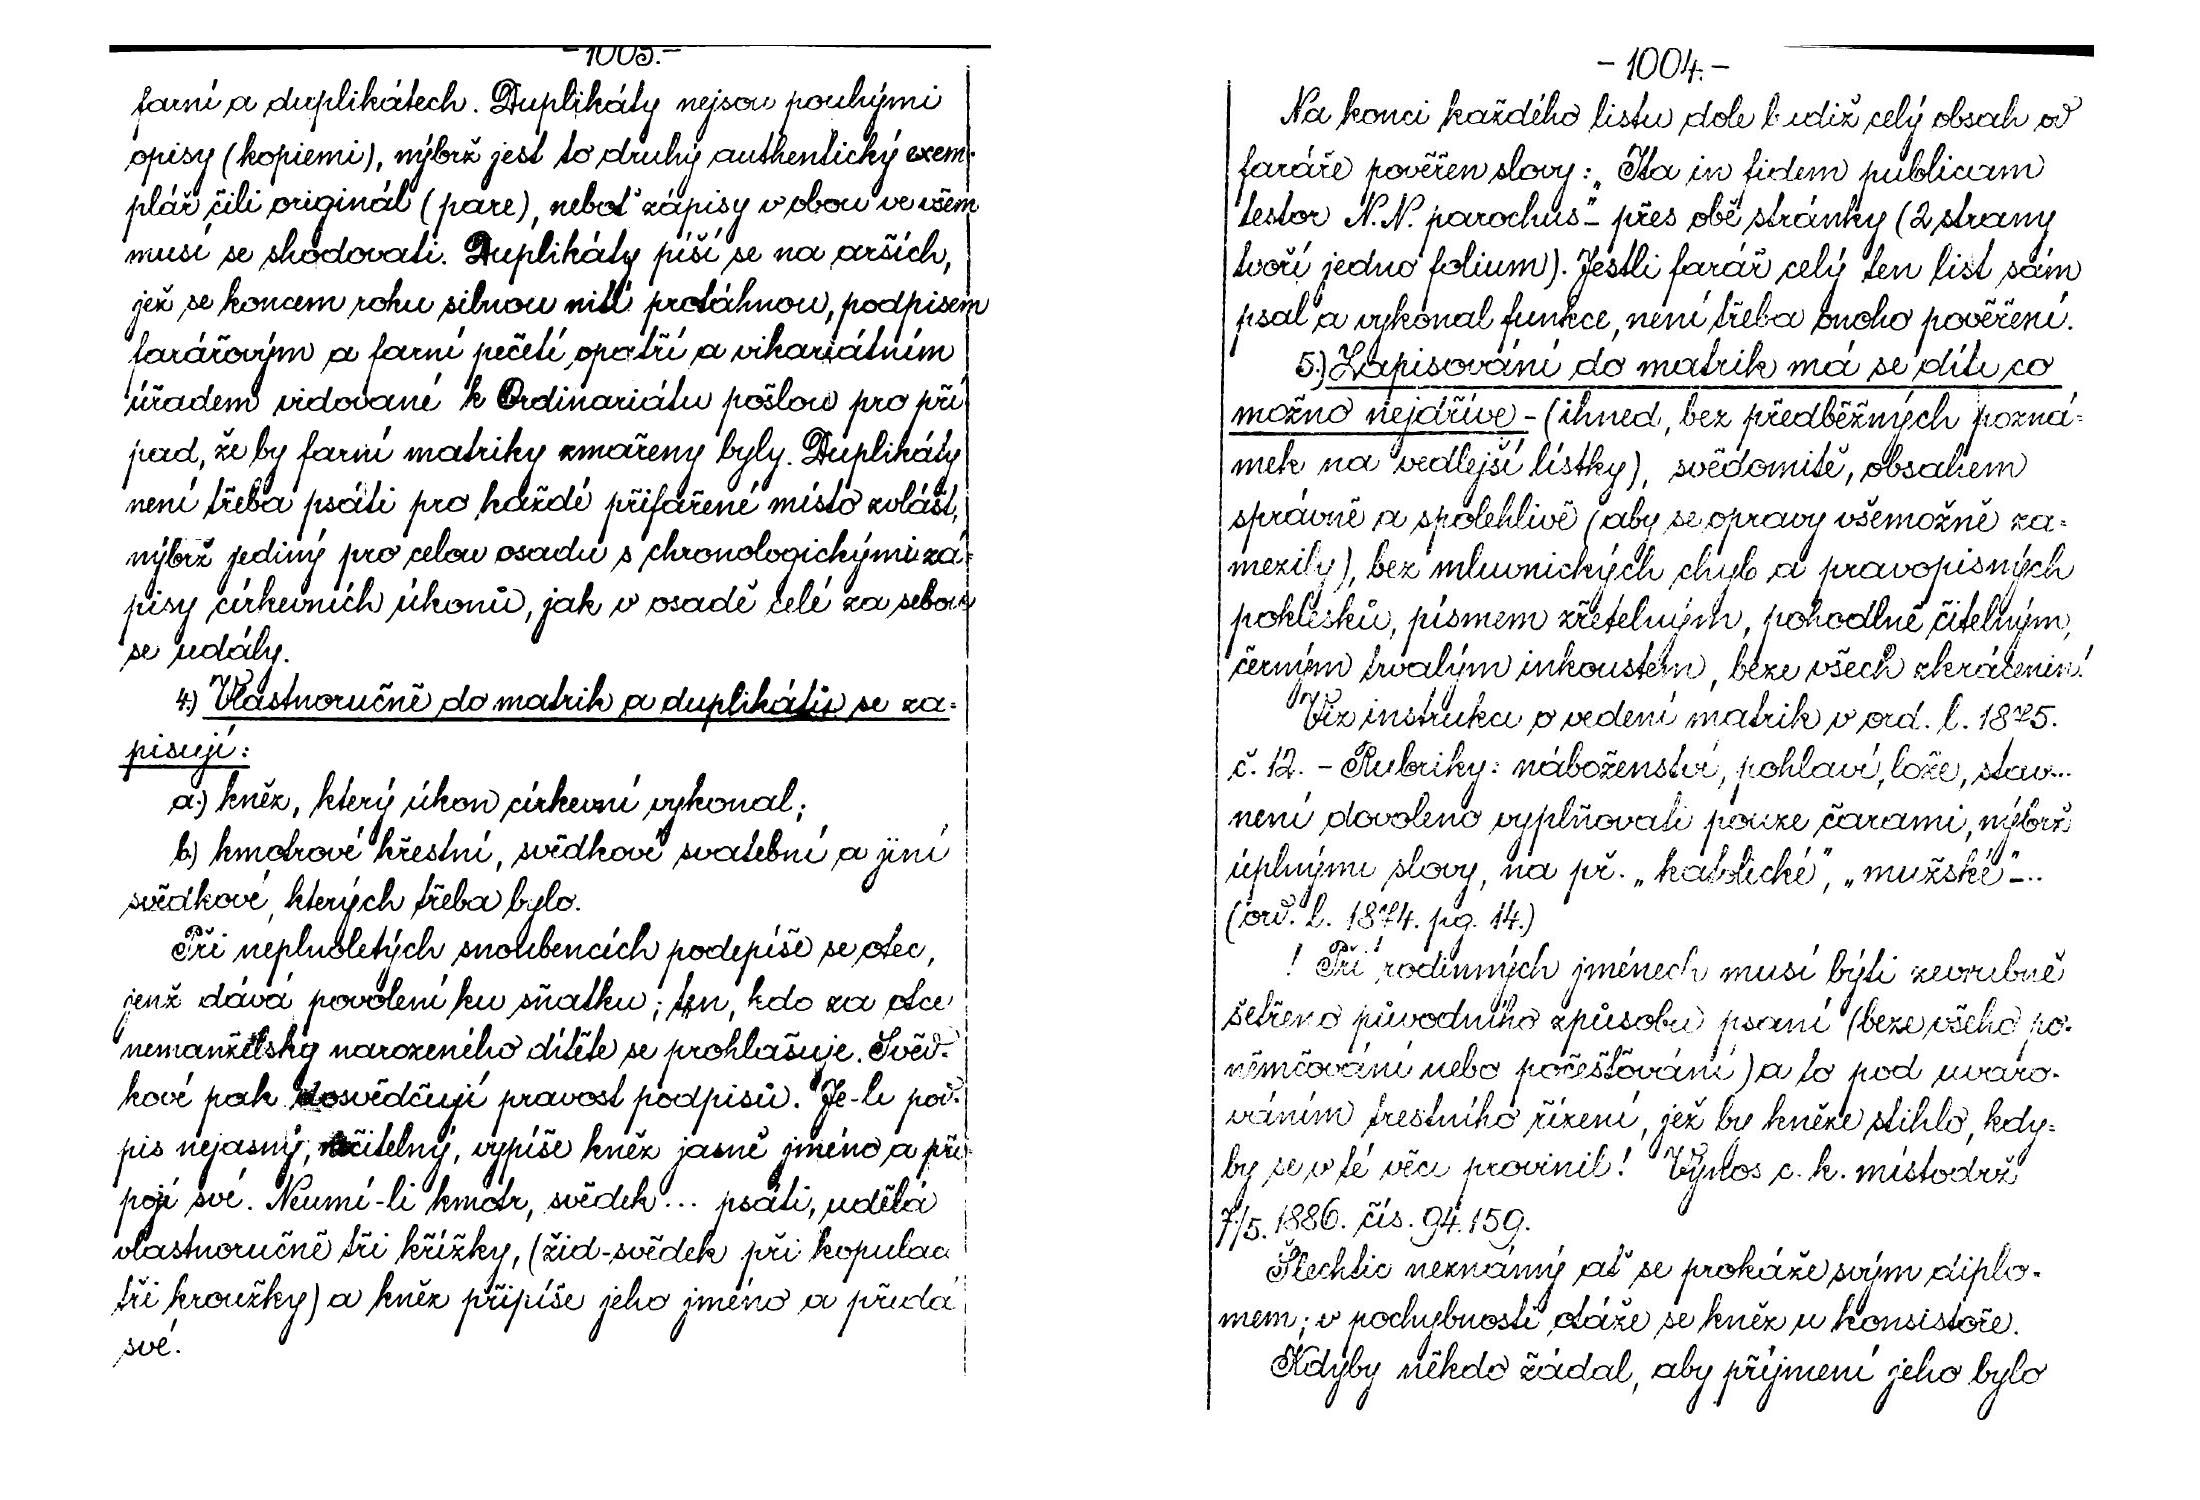 -1003.-
farní a duplikátech. Duplikáty nejsou pouhými
opisy (kopiemi), nýbrž jest to druhý authentický exem-
plář čili originál (pare), neboť zápisy v obou ve všem
musí se shodovati. Duplikáty píší se na arších,
jež se koncem roku silnou nití protáhnou, podpisem
farářovým a farní pečetí opatří a vikariátním
úřadem vidované k Ordinariátu pošlou pro pří
pad, že by farní matriky zmařeny byly. Duplikáty
není třeba psáti pro každé přifařené místo zvlášť,
nýbrž jediný pro celou osadu s chronologickými zá-
pisy církevních úkonů, jak v osadě celé za sebou
se udály.
4.) Vlastnoručně do matrik a duplikátů se za-
pisují:
a.) kněz, který úkon církevní vykonal;
b.) kmotrové křestní, svědkové svatební a jiní
svědkové, kterých třeba bylo.
Při neplnoletých snoubencích podepíše se otec,
jenž dává povolení ku sňatku; ten, kdo za otce
nemanželsky narozeného dítěte se prohlašuje. Svěd-
kové pak dosvědčují pravost podpisů. Je-li pod-
pis nejasný, nečitelný, vypíše kněz jasně jméno a při
pojí své. Neumí-li kmotr, svědek... psáti, udělá
vlastnoručně tři křížky, (žid-svědek při kopulaci
tři kroužky) a kněz připíše jeho jméno a přidá
své.
-1004.-
Na konci každého listu dole budiž celý obsah od
faráře pověřen slovy: „Ita in fidem publicam
testor N.N. parochus"- přes obě stránky (2 strany
tvoří jedno folium). Jestli farář celý ten list sám
psal a vykonal funkce, není třeba onoho pověření.
5.) Zapisování do matrik má se díti co
možno nejdříve - (ihned, bez předběžných pozná-
mek na vedlejší lístky), svědomitě, obsahem
správně a spolehlivě (aby se opravy všemožně za-
mezily), bez mluvnických chyb a pravopisných
poklésků, písmem zřetelným, pohodlně čitelným,
černým trvalým inkoustem, beze všech zkrácenin!
Viz instrukci o vedení matrik v ord. l. 1875.
č. 12. - Rubriky: náboženství, pohlaví, lože, stav...
není dovoleno vyplňovati pouze čarami, nýbrž
úplnými slovy, na př. „katolické", „mužské"-..
(ord. l. 1874. pg. 14.)
! Při rodinných jménech musí býti zevrubně
šetřeno původního způsobu psaní (beze všeho po-
němčování nebo počešťování) a to pod uvaro-
váním trestního řízení, jež by kněze stihlo, kdy-
by se v té věci provinil! Výnos c. k. místodrž
7/5. 1886. čís. 94.159.
Šlechtic neznámý ať se prokáže svým diplo-
mem; v pochybnosti otáže se kněz u konsistoře.
Kdyby někdo žádal, aby příjmení jeho bylo